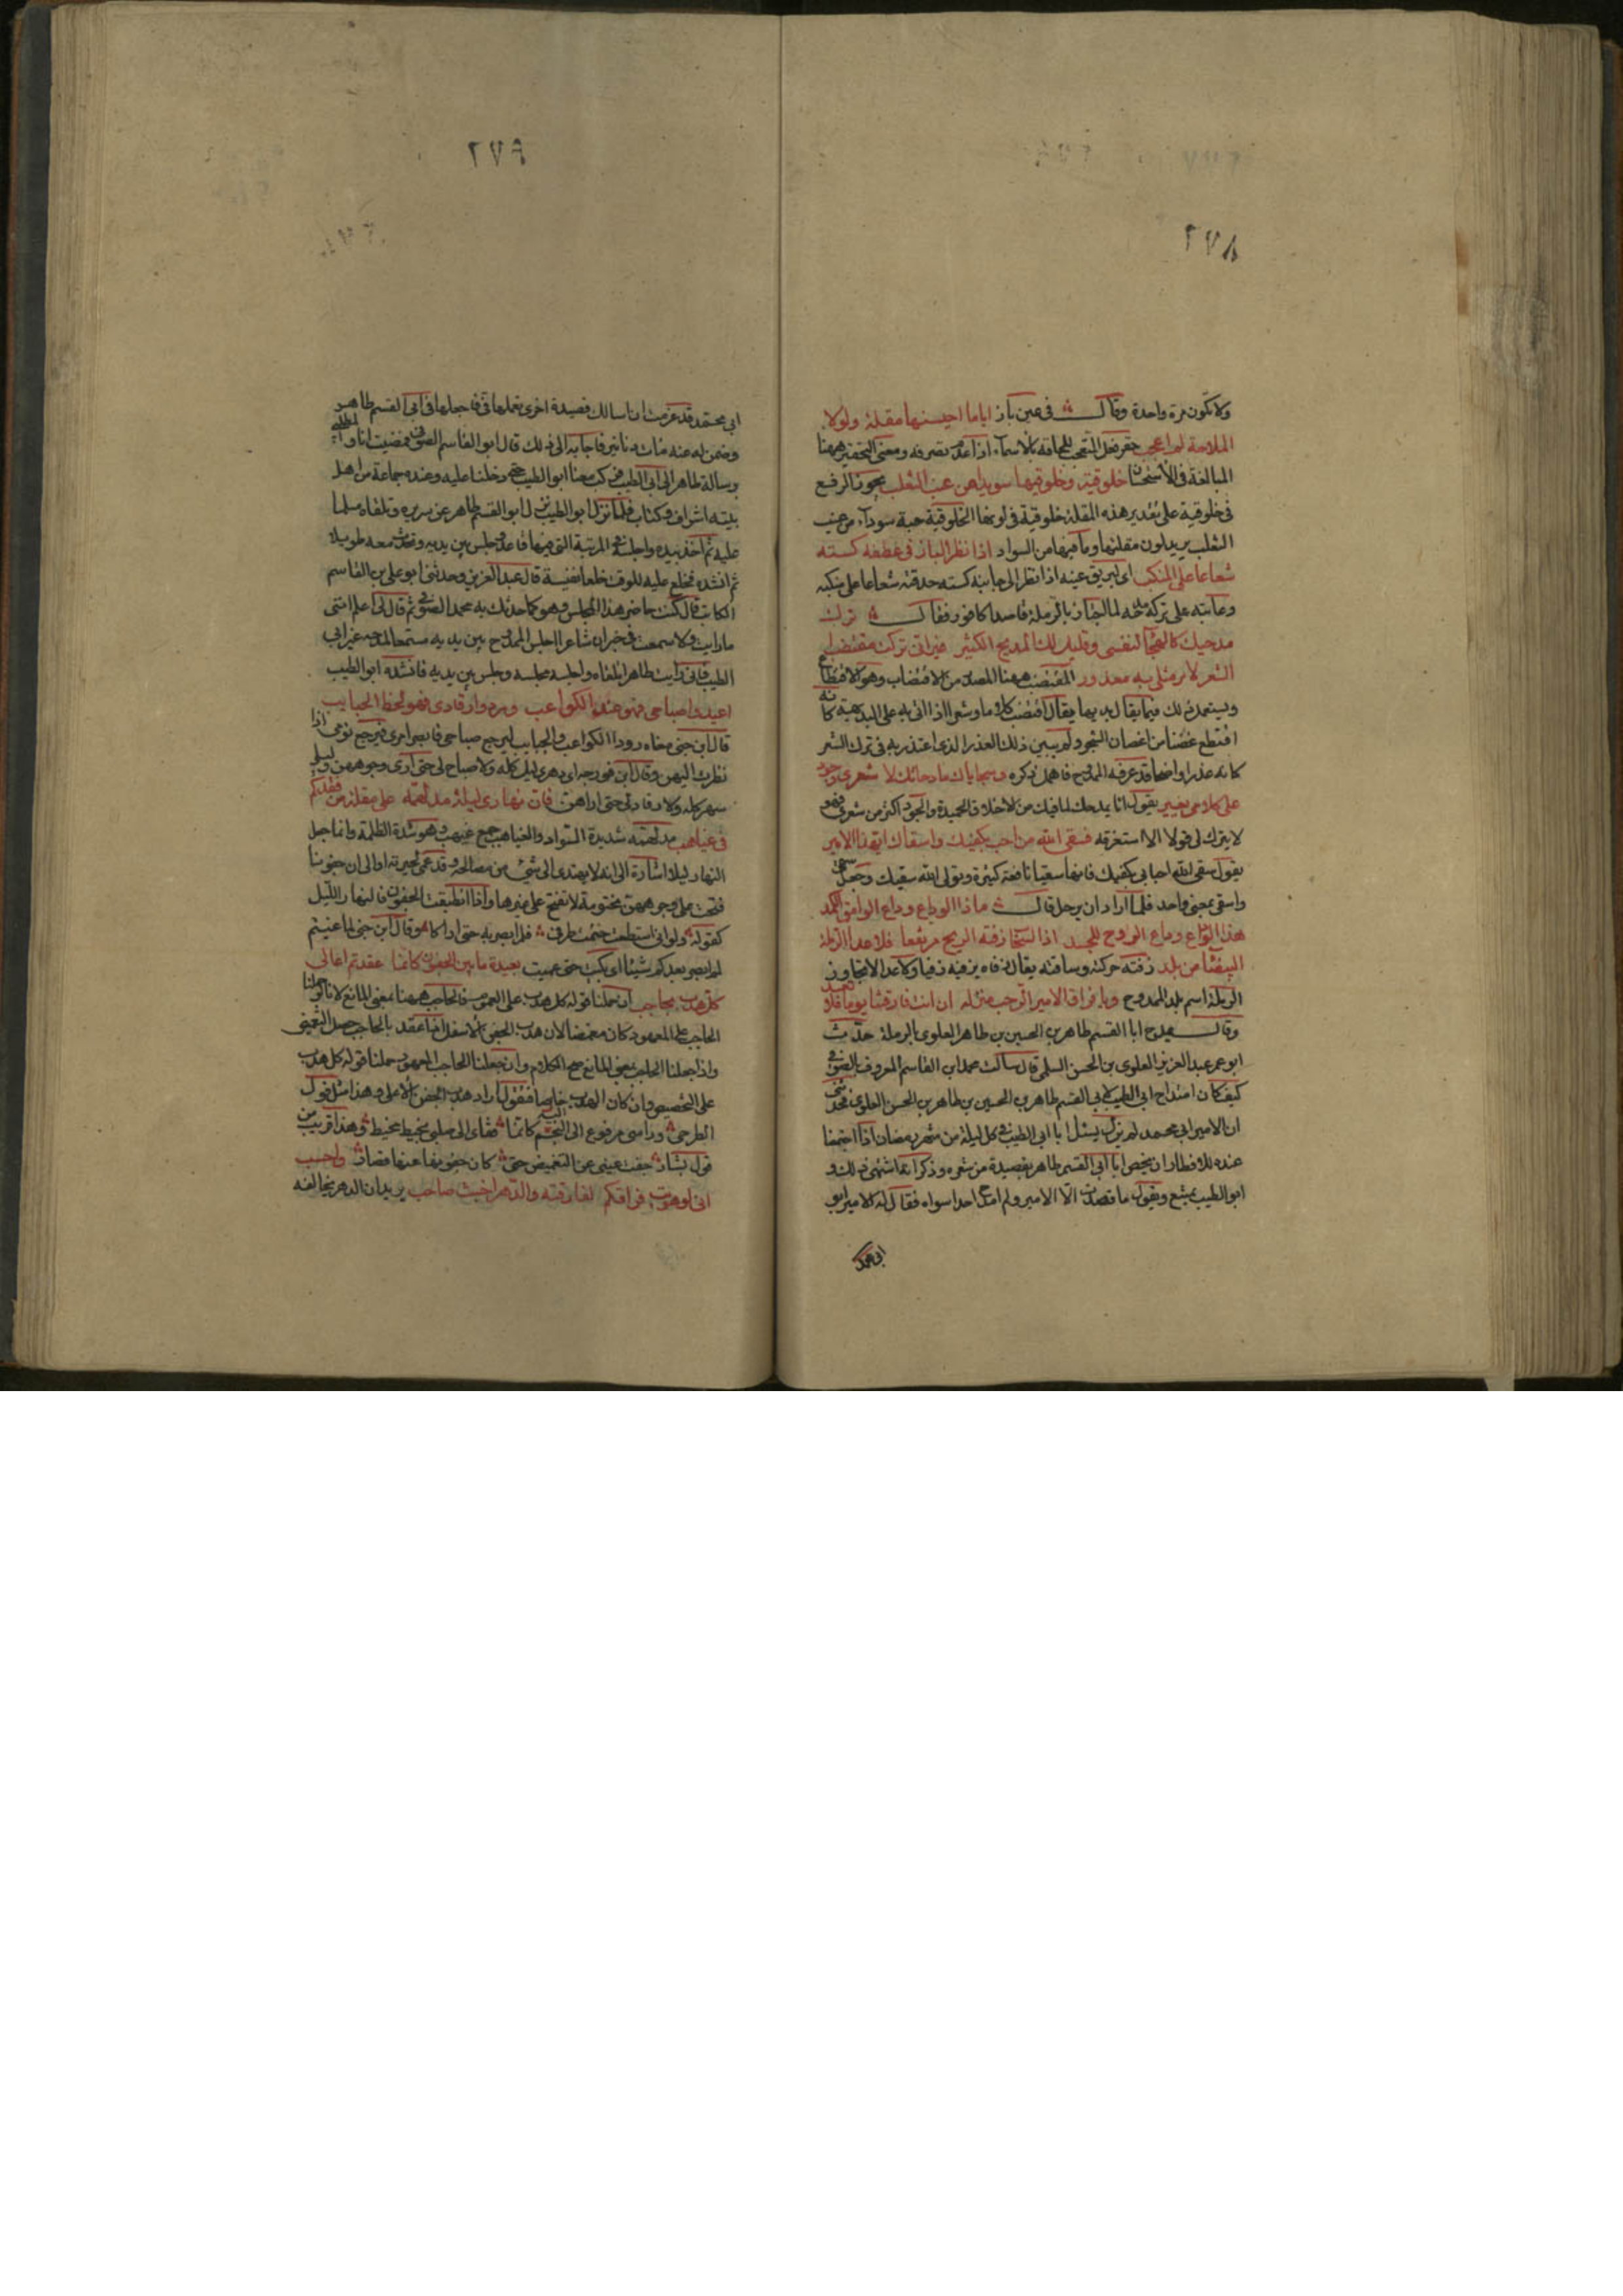 ٢٧٨
ولا تكون مرة واحدة وقال في عين باز اياما احيسنها مقلة ولولا
الملاحة لم اعجب حقر فعل التعجب لالحاقه بالاسماء اذا عدم تصرفه ومعنى التحقير ههنا
المبالغة في الاستحسان خلوقية في خلوقيها سويداء من عنب الثعلب يجوز الرفع
في خلوقية على تقدير هذه المقلة خلوقية في لونها الخلوقية حبة سوداء من عنب
الثعلب يريد لون مقلتها وما فيها من السواد اذا نظر الباز في عطفه كسته
شعاعا على المنكب اى لبريق عينه اذا نظر الى جانبه كسته حدقته شعاعا على منكبه
وعاتبه على تركه مدحه لما اجتاز بالرملة قاصدا كافور فقال ترك
مدحيك كالهجاء لنفسى وقليل لك المديح الكثير غير انى تركت مقتضب
الشعر لامر مثلى به معذور المقتضب ههنا المصدر من الاقتضاب وهو الاقتطاع
ويستعمل ذلك فيما يقال بديها يقال اقتضب كلاما وشعرا اذا اتى به على البديهة كانه
اقتطع غصنا من اغصان الشجر ولم يبين ذلك العذر الذى اعتذر به في ترك الشعر
كانه عذرا واضحا قد عرفه الممدوح فاهمل ذكره وسجاياك مادحاتك لا شعرى وجود
على كلامى يغير يقول انما يمدحك لما فيك من الاخلاق الحميدة والجود اكثر من شعرى فهو
لا يترك لى قولا الا استغرقه فسقى الله من احب بكفيك واسقاك ايهذا الامير
يقول سقى الله احبابى بكفيك فانها سقيا نافعة كثيرة وتولى الله سقيك وجعل سقى
واسقى بمعنى واحد فلما اراد ان يرحل قال ماذا الوداع وداع الوامق الكمد
هذا الوداع وداع الروح للجسد اذا السحاب زفته الريح مرتفعا فلا عدا الرملة
البيضاء من بلد زفته حركته وساقته يقال زفاه يزفيه زفيا ولا عدا لا تجاوز
الرملة اسم بلد الممدوح ويا فراق الامير الرحب منزله ان انت فارقتنا يوما فلا تعد
وقال يمدح ابا القسم طاهر بن الحسين بن طاهر العلوى بالرملة حدث
ابو عمر عبد العزيز العلوى بن الحسن السلمى قال سالت محمد ابن القاسم المعروف بالصوفى
كيف كان امتداح ابى الطيب لابى القسم طاهر بن الحسين بن طاهر بن الحسن العلوى فحدثنى
ان الامير ابى محمد لم يزل يسئل ابا الطيب في كل ليلة من شهر رمضان اذا اجتمعنا
عنده للافطار ان يخص ابا القسم طاهر بقصيدة من شعره وذكر انما اشتهى ذلك و
ابو الطيب يمتنع ويقول ما قصدت الا الامير ولم امتدح احدا سواه فقال له الامير ابو
ابى محمد
٢٧٩
ابى محمد قد عزمت ان اسالك قصيدة اخرى تعملها في فاجعلها في ابى القسم طاهر
وضمن له عنه مئات دنانير فاجابه الى ذلك قال ابو القاسم الصوفى فمضيت انا والمطلبى
برسالة طاهر الى ابى الطيب فركب معنا ابو الطيب حتى دخلنا عليه وعنده جماعة من اهل
بيته اشراف وكتاب فلما نزل ابو الطيب نزل ابو القسم طاهر عن سريره وتلقاه مسلما
عليه ثم اخذ بيده واجلسه في المرتبة التى فيها قاعد وجلس بين يديه وتحدث معه طويلا
ثم انشده فخلع عليه للوقت خلعا نفيسة قال عبد العزيز وحدثنى ابو على بن القاسم
الكاتب قال كنت حاضر هذا المجلس وهو كما حدثك به محمد الصوفى ثم قال لى اعلم انى
ما رايت ولا سمعت في خبر ان شاعرا جلس الممدوح بين يديه مستمعا لمدحه غير ابى
الطيب فانى رايت طاهرا تلقاه واجلسه مجلسه وجلس بين يديه فانشده ابو الطيب
اعيدوا صباحى فهو عند الكواعب وردوا رقادى فهو لحظ الحبايب
قال ابن جنى معناه ردوا الكواعب والحبايب ليرجع صباحى فابصر امرى فيرجع نومى اذا
نظرت اليهن وقال ابن فورجه اى دهرى ليل كله ولا صباح لى حتى ارى وجوههن وليلى
سهر كله ولا رقاد لى حتى اراهن فان نهارى ليلة مدلهمة على مقلة من فقدكم
في غياهب مدلهمة شديدة السواد والغياهب جمع غيهب وهو شدة الظلمة وانما جعل
النهار ليلا اشارة الى انه لا يهتدى الى شئ من مصالحه وقد عمى لحيرته او الى ان جفوننا
فتحت على وجوههن مختومة لا تفتح على غيرها واذا انطبقت الجفون فالنهار الليل
كقوله ولو انى استطعت ختمت طرفى فلم ابصر به حتى اراكا وقال ابن جنى لما غبتم
لم ابصر بعدكم شيئا اى بكيت حتى عميت بعيدة ما بين الجفون كانما عقدتم اعالى
كل هدب بحاجب ان حملنا قوله كل هدب على العموم فالحاجب ههنا بمعنى المانع لانا لو حملنا
الحاجب على المعهود كان مغمضا لان هدب الجفن الاسفل اذا عقد بالحاجب حصل التغميض
واذا جعلنا الحاجب بمعنى المانع صح الكلام وان جعلنا الحاجب المعهود حملنا قوله كل هدب
على التخصيص وان كان الهدب خاصا فنقول اراد هدب الجفن الاعلى وهذا مثل قول
الطرمى وراسى مرفوع الى النجم كانما قفاى الى صلبى بخيط مخيط وهذا قريب من
قول بشار جفت عينى عن التغميض حتى كان جفونها عنها قصار واحسب
انى لو هويت فراقكم لفارقته والدهر اخبث صاحب يريد ان الدهر يخالفه